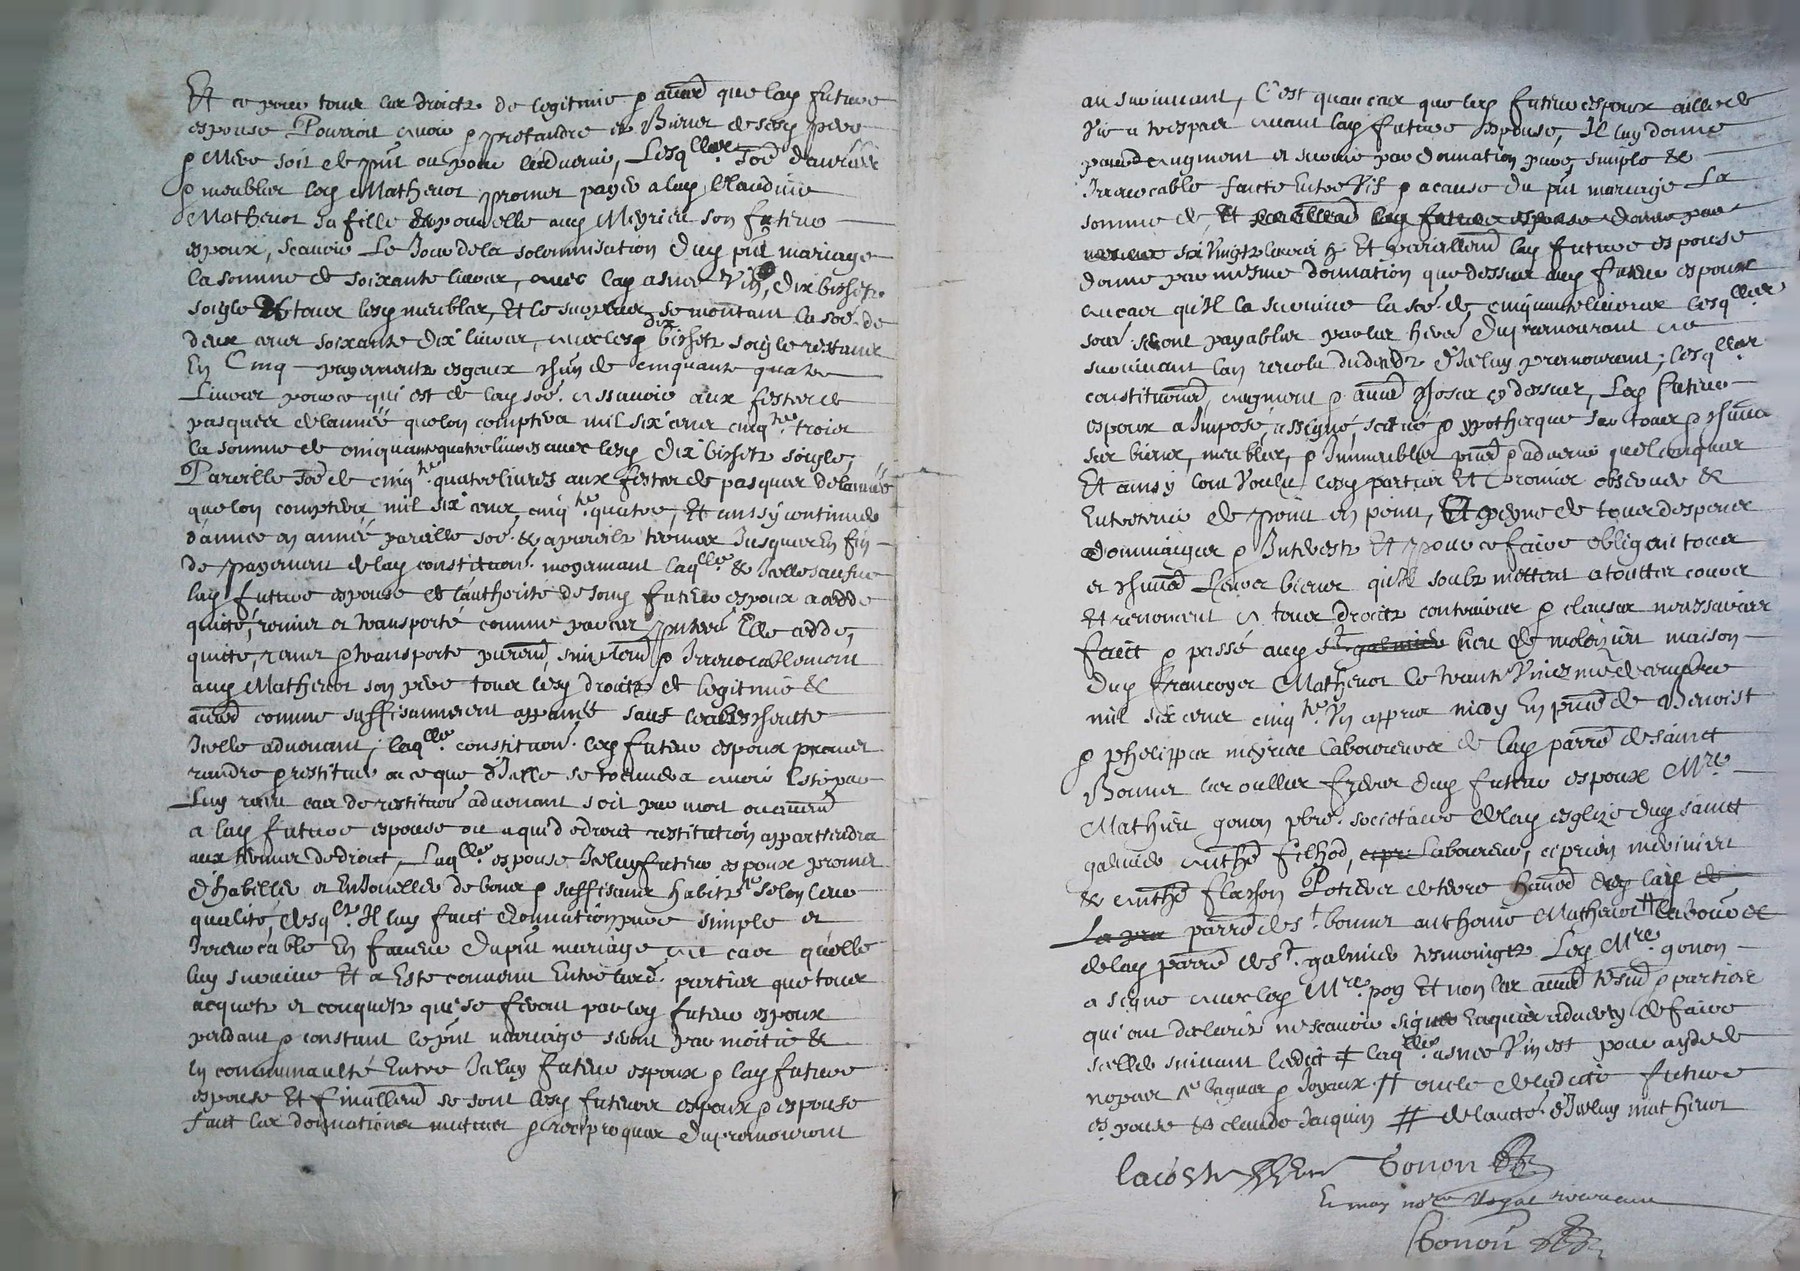 Et ce pour tous les droictz de legitime & autres que lad future
espouse Pourroit avoir & pretandre es Biens de sesd pere
& Mere soit de pnt ou pour l'advenir, Lesqlles soe d'argent
& meubles led Mathevot promet payer a lad Claudine
Mathevot sa fille & pour elle aud Meyrieu son futur
espoux, scavoir Le Jour de la solemnisation dud pnt mariage
la somme de soixante livres, avec lad asnee Vin, dix bichetz
soigle & tous lesd meubles, Et le surplus se montant la soe de
deux cens soixante dix livres, avec lesd dix bichetz soigle restans
En Cinq payementz esgaux chun de cinquante quatre
Livres pour ce qui est de lad soe, a scavoir aux festes de
pasques de lannée que lon comptera mil six cens cinqte trois
la somme de cinquante quatre livres avec lesd dix bichetz soigle,
Pareille soe de cinqte quatre livres aux festes de pasques de lannée
que lon comptera mil six cens cinqte quatre, Et ainsy continuer
d'annee en année pareille soe & a pareilz termes Jusques En fin
de payement de lad constituon. moyennant laqlle & Icelle sauve
lad future espouse de l'authorité de sond futur espoux a cedde
quicté, remis et transporté comme par ces pntes Elle cedde,
quicte, remet & transporte puremt, simplemt & Irrevocablement
aud Mathevot son pere tous lesd droictz de legitime &
autres comme suffisamment appanée sauf loyalle escheutte
Icelle advenant, laqlle constituon. led futur espoux promet
randre & restituer ou ce que d'Icelle se trouvera avoir Esté par
Luy receu cas de restituon advenant soit par mort ou autremt
a lad future espouse ou a qui de droict restitution appartiendra
aux termes de droict, Laqlle espouse Icelluy futur espoux promet
d'habiller et Enjoueller de bons & suffisans habitz selon leur
qualité, desqlz Il luy faict donnation pure simple et
Irrevocable En faveur du pnt mariage au cas qu'elle
luy survive Et a Esté convenu Entre lesd. parties que tous
acquetz et conquetz que se feront par led futur espoux
pendant & constant le pnt mariage seront par moitié &
en communaulté Entre Icluy futur espoux & lad future
espouse Et finallemt se sont lesd futurs espoux & espouse
faict les donnations mutues & reciproques du premourant
au survivant, C'est qu'au cas que led futur espoux aille de
Vie a trespas avant lad future espouse, Il luy donne
par augment et survie par donnation pure, simple &
Irrevocable faicte Entre Vifs & a cause du pnt mariage La
somme de, Et pareillemt lad future espouse donne par
six Vingtz livres & Et pareillemt lad future espouse
donne par mesme donnation que dessus aud futur espoux
au cas qu'Il la survive la soe de cinquante livres lesqlles
soes seront payables par les hers du premourant au
survivant lan revolu du deces d'Icluy premourant, lesqlles
constituons, augment & autres choses cy dessus, Led futur
espoux a Imposé, assigné, scitué & yppothecque sur tous & chuns
ses biens, meubles, & Immeubles pnts & advenir quelconques
Et ainsy l'ont Voulu lesd parties Et promis observer &
Entretenir de point en point, Et a peyne de tous despens
dommaiges & Interestz Et pour ce faire obligent tous
et chuns Leurs biens qu'Ilz soubz mettent a touttes cours
Et renoncent a tous droictz contraires & clauses necessaires
faict & passé aud St galmier lieu de molezieu maison
dud francoyes Mathevot le trante Vniesme decembre
mil six cens cinqte Vn appres midy En pnce de Benoist
& phelippes meyrieu laboureurs de lad parre de sainct
Bonnet les oulles freres dud futur espoux Mre
Mathieu gonon pbre. societaire de lad esglize dud sainct
galmier anthe filhod, laboureur, ciprien meviniere
& anthe flasson Potiers de terre habt
La pra parre de St bonnet anthoine Mathevot # labour de
de lad parre de St. galmier tesmoingtz Led Mre gonon
a signé avec led Mre poy Et non les autres tesmd & parties
qui ont declaré ne scavoir signer Enquis & deuemt de faire
scelle suivant ledict # laqlle asnee Vin est pour ayde de
nopces Ne bagues & Joyaux # oncle de ladicte future
espouse & claude Jacquin # de lautté d'Icluy mathevot
lacoste Gonon
Et moy nore Royal recevant
Gonon